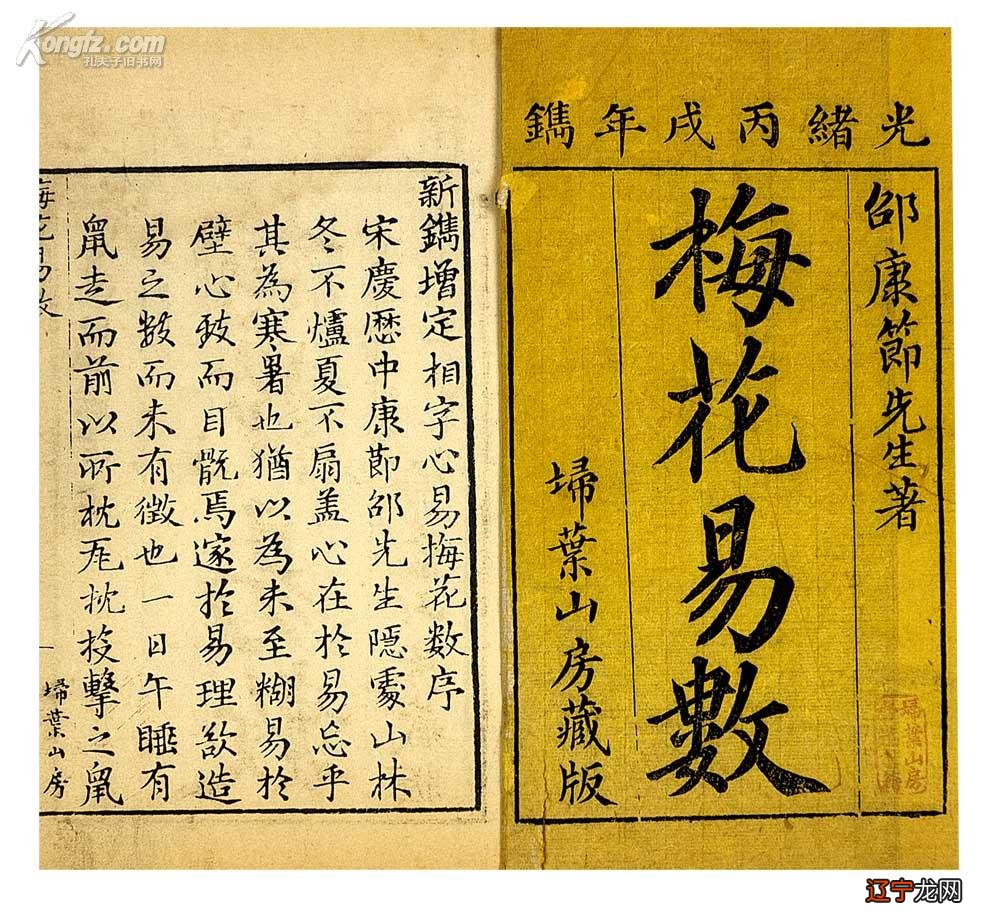 Kongfz.com
孔夫子旧书网
光緒丙戌年鐫
邵康節先生著
梅花易數
埽葉山房藏版
埽葉山房
新鐫增定相字心易梅花数序
宋慶厯中康節邵先生隱處山林
冬不爐夏不扇盖心在於易忘乎
其為寒暑也猶以為未至糊易於
壁心致而目骩焉邃於易理欲造
易之数而未有徵也一日午睡有
鼠走而前以所枕瓦枕投擊之鼠
一 埽葉山房
辽宁龙网